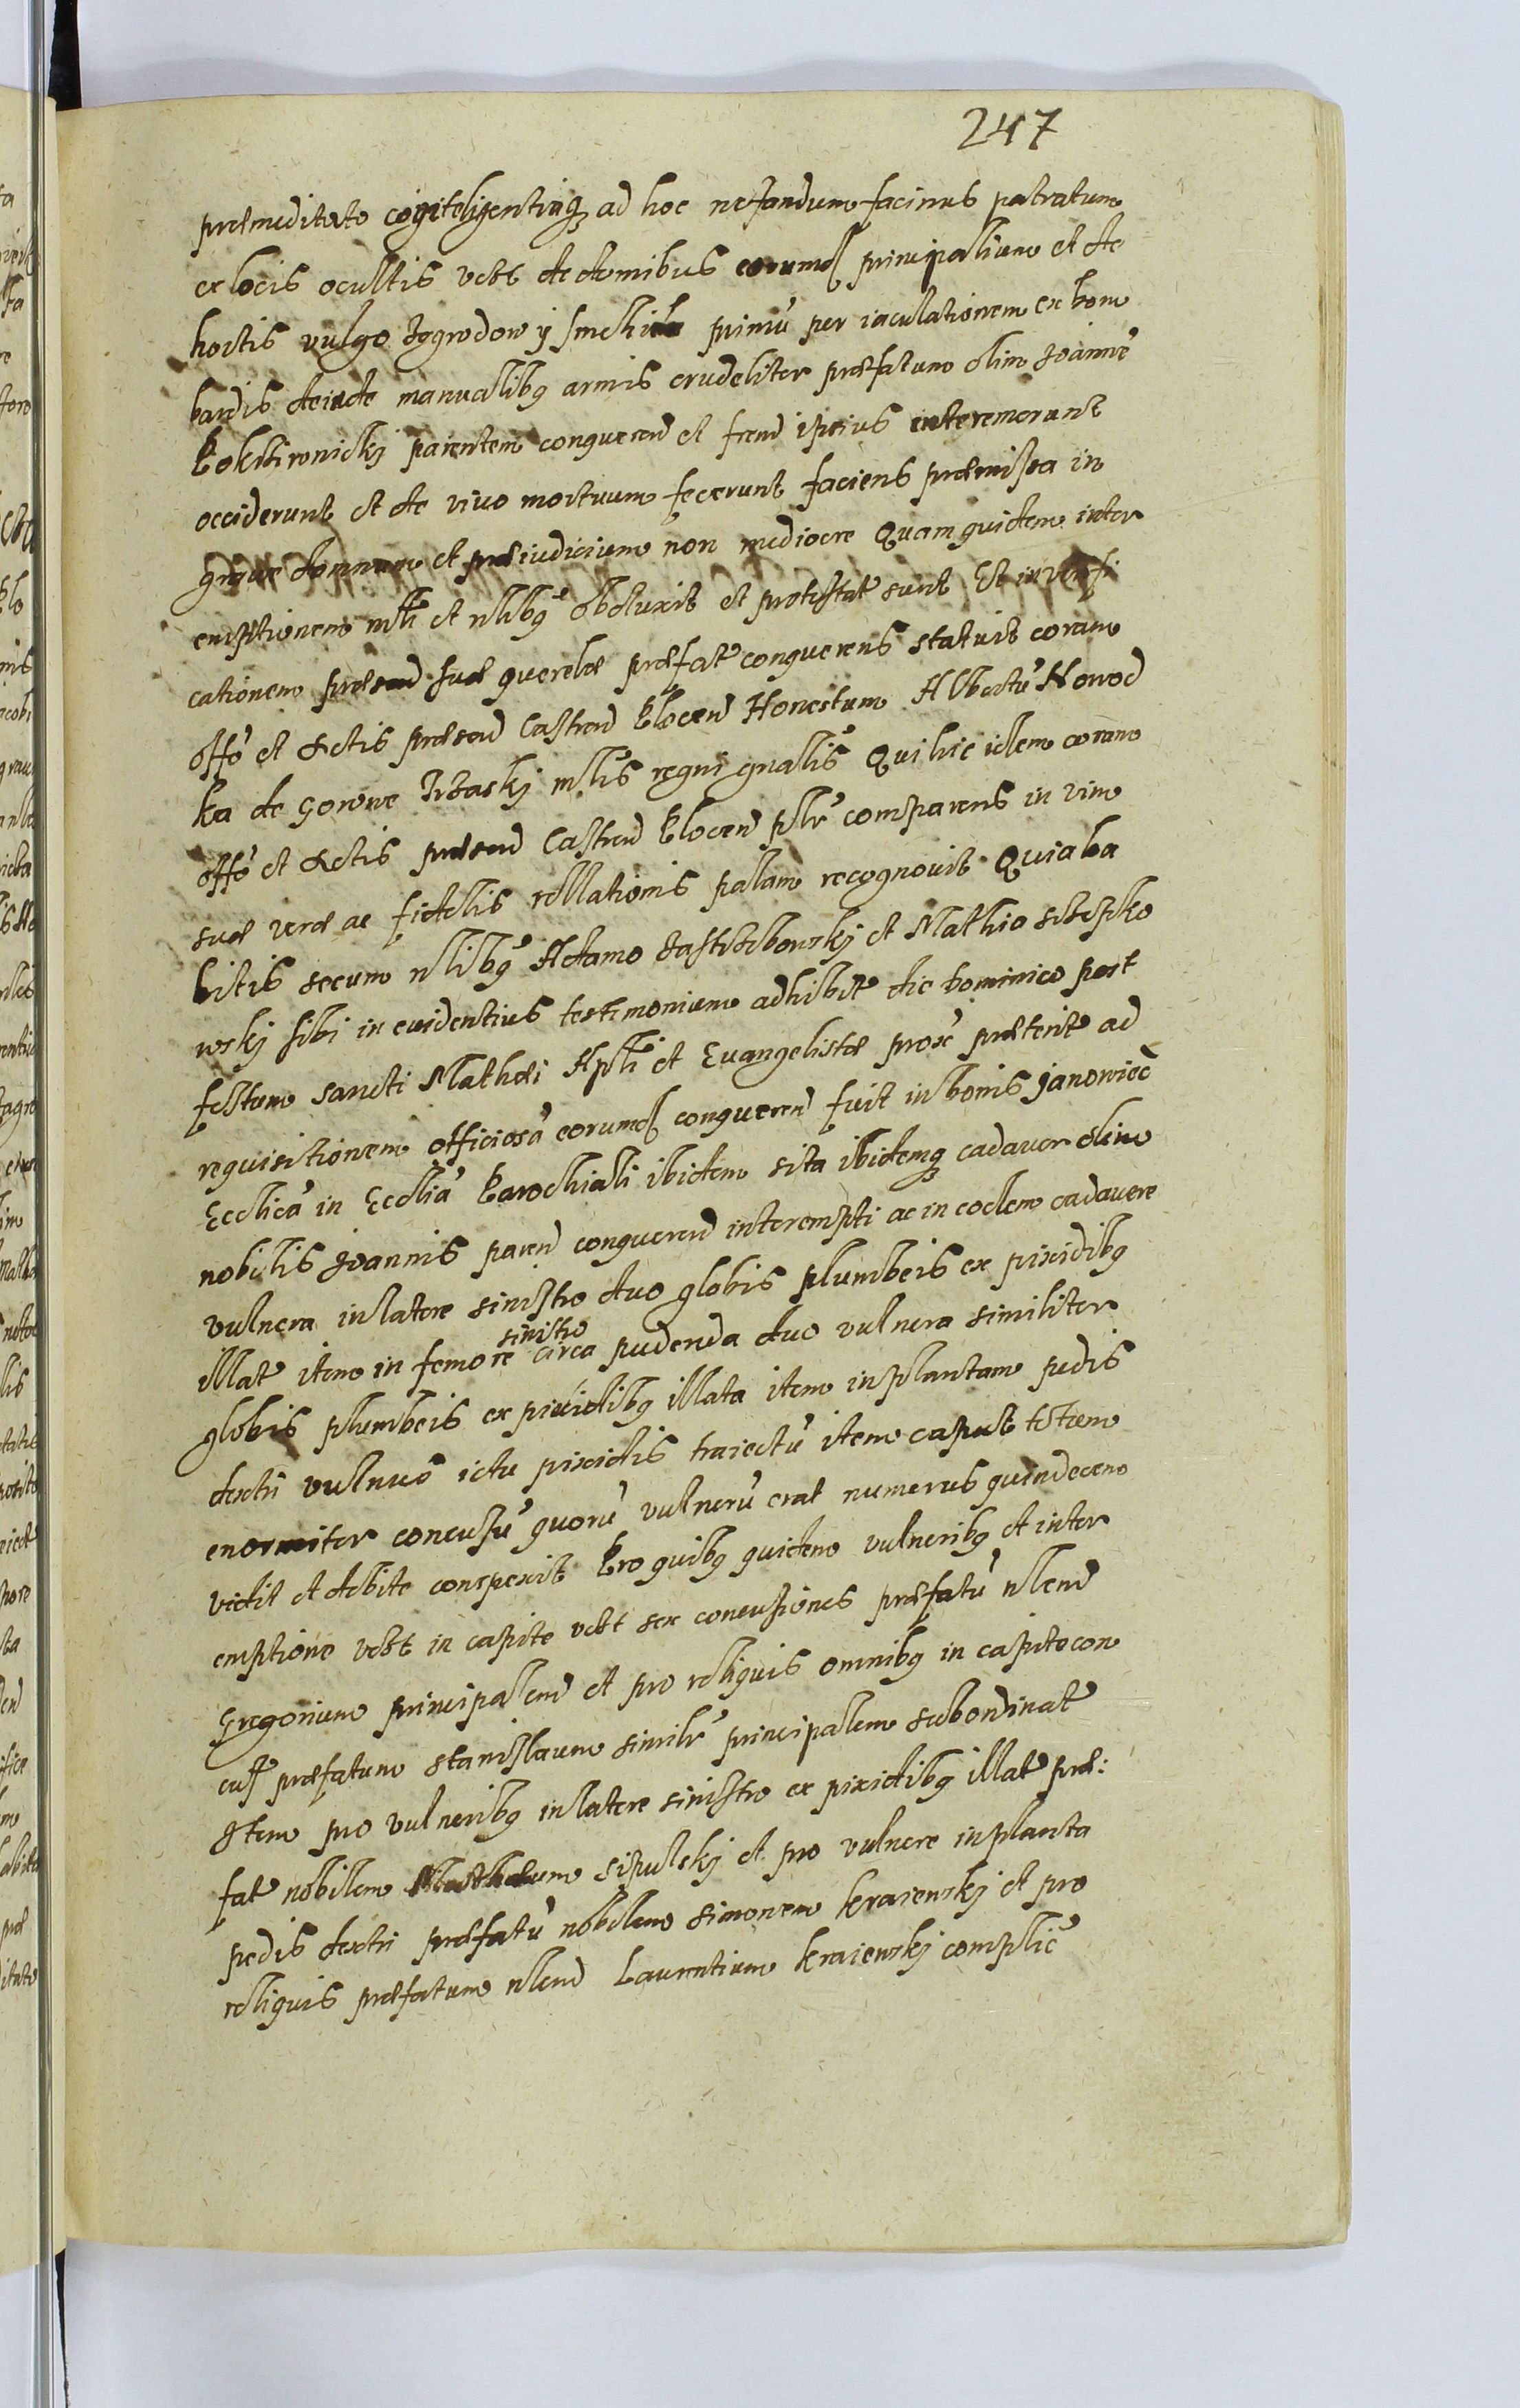 247
præmeditato cointeligentiaq ad hoc nefandum facinus patratum
ex locis ocultis vdct de domibus eorumd principalium et de
hortis vulgo Zogrodow y primu per iaculationem ex bom
bardis deinde manualibq armis crudeliter præfatum olim Joanne
parentem conqueren et fren ipsius interemerunt
occiderunt et de vivo mortuum fecerunt faciens præmissa in
grave domnum et præiudicium non mediocre Quam quidem inter
emptionem mlti et nlibq obduxit et protestat sunt Et in verifi
cationem præsen suæ querelæ præfat conquerens statuit coram
offo et Actis præsen Castren Plocen Honestum Albertu Nowod
ka de Gorwe mlis regni gnalis Qui hic idem coram
offo et Actis præsen Castren Plocen plr comparens in vim
suæ veræ ac fidelis rellationis palam recognovit Quia ha
bitis secum nlibq Adamo et Mathia
wskj sibi in evidentius testimonium adhibit die Dominico post
festum sancti Mathæi Apli et Evangelistæ prox præterit ad
requisitionem officiosa eorumd conqueren fuit in bonis Janowiec
Ecclica in Ecclia Parochiali ibidem sita ibidemq cadaver olim
nobilis Joannis paren conqueren interempti ac in eodem cadavere
vulnera in latere sinistro duo globis plumbeis ex pixidibq
illat item in femore sinistro circa pudenda duo vulnera similiter
globis plumbeis ex pixidibq illata item in plantam pedis
dextri vulnus ictu pixidis traiectu item caput totum
enormiter concussu quoru vulneru erat numerus quindecem
vidit et debite conspexit Pro quibq quidem vulneribq et inter
emptione vdct in capite vdct sex concussiones præfatu nlem
Gregorium principalem et pro reliquis omnibq in capite con
cuss præfatum Stanislaum similr principalem subordinat
Item pro vulneribq in latere sinistro ex pixidibq illat præ:
fat nobilem Mathæum Sipulskj et pro vulnere in planta
pedis dextri præfatu nobilem Simonem Kraiewskj et pro
reliquis præfatum nlem Laurentium Kraiewskj complic